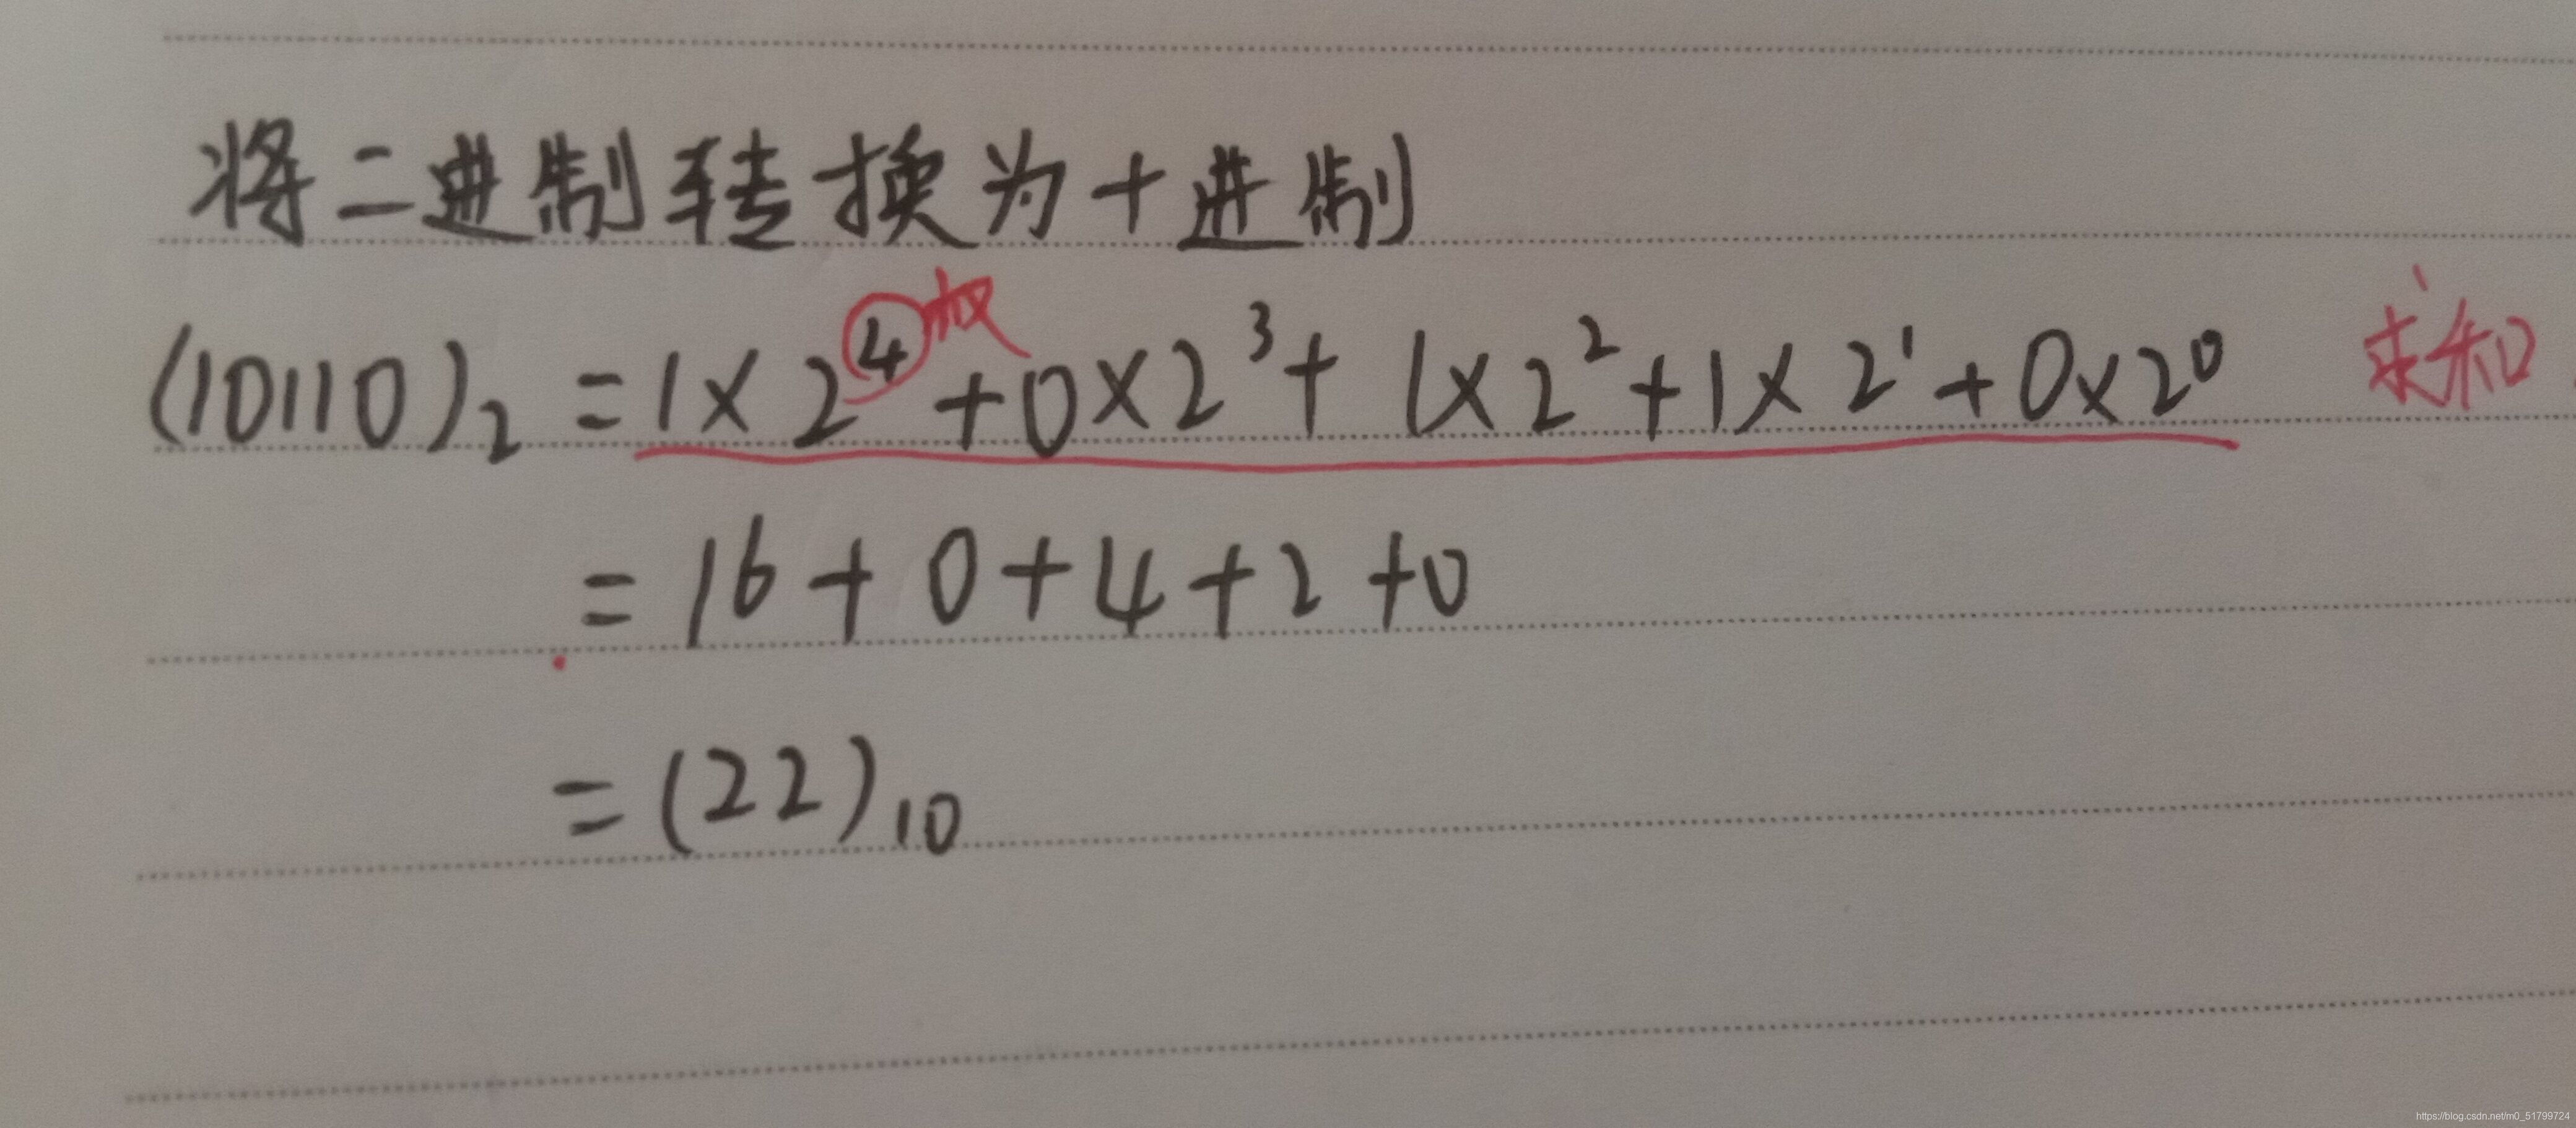 将二进制转换为十进制
(10110)₂ = 1×2⁴ 权 +0×2³+ 1×2²+1×2¹+0×2⁰ 求和
= 16+0+4+2+0
= (22)₁₀
https://blog.csdn.net/m0_51799724